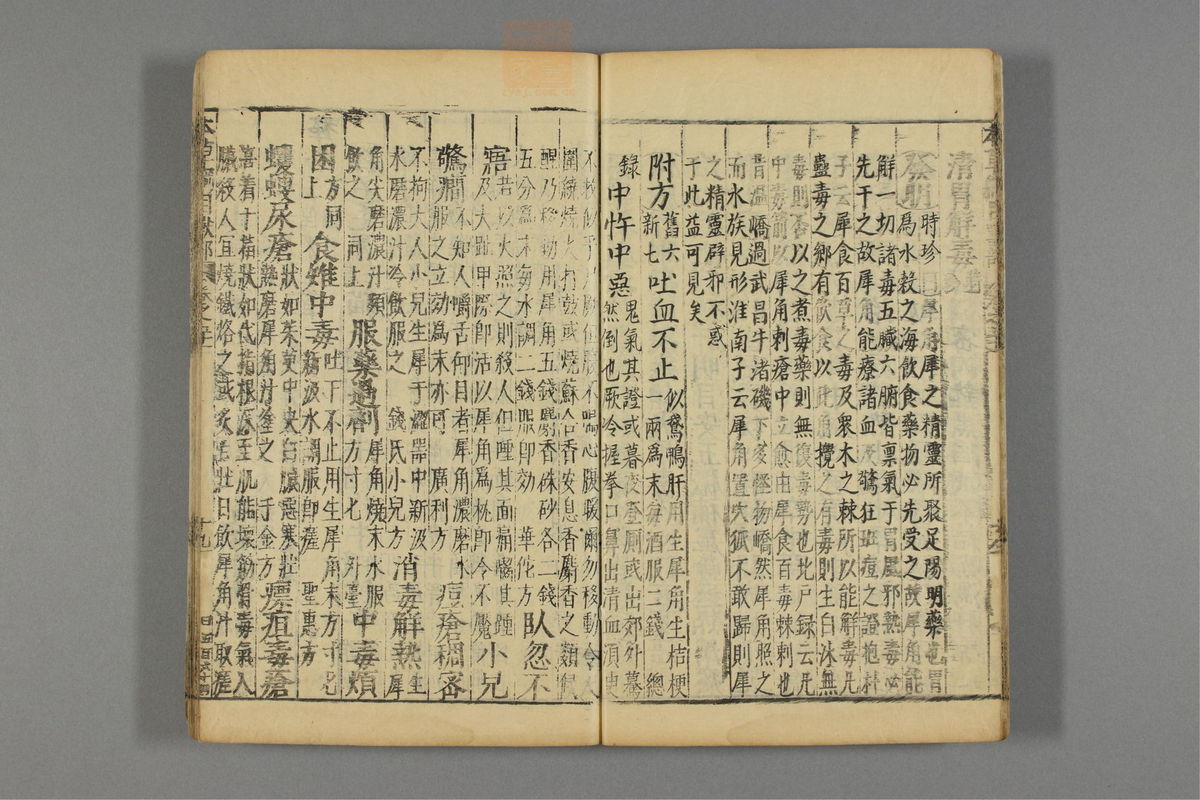 清胃解毒
發明時珍曰犀角犀之精靈所聚足陽明藥也胃
爲水穀之海飲食藥物必先受之故犀角能
解一切諸毒五臟六腑皆禀氣于胃風邪熱毒必
先干之故犀角能療諸血及驚狂斑痘之證抱朴
子云犀食百草之毒及衆木之棘所以能解毒凡
蠱毒之鄉有飲食以此角攪之有毒則生白沫無
毒則否以之煮毒藥則無復毒勢也北戶録云凡
中毒箭以犀角刺瘡中立愈由犀食百毒棘刺也
昔溫嶠過武昌牛渚磯下多怪物嶠然犀角照之
而水族見形淮南子云犀角置穴狐不敢歸則犀
之精靈辟邪不惑
于此益可見矣
附方舊六新七吐血不止似鵞鴨肝用生犀角生桔梗一兩爲末每酒服二錢總
録中忤中惡鬼氣其證或暮夜登厠或出郊外驀然倒也厥冷握拳口鼻出清血須臾
不救似乎尸厥但腹不鳴心腹暖爾勿移動令人
圍繞燒火打鼓或燒蘇合香安息香麝香之類候
醒乃移動用犀角五錢麝香硃砂各二錢
五分爲末每水調二錢服即効 華佗方卧忽不
寤若以火照之則殺人但唾其面痛嚙其踵
及大趾甲際即活以犀角爲枕即令不魘小兒
驚癇不知人嚼舌仰目者犀角濃磨水
服之立効爲末亦可 廣利方痘瘡稠密
不拘大人小兒生犀于澀器中新汲
水磨濃汁冷飲服之 錢氏小兒方消毒解熱生犀
角尖磨濃汁頻飲之 同上服藥過劑犀角燒末水服方寸七 外臺中毒煩
困上方同上食雉中毒吐下不止用生犀角末方寸匕新汲水調服即瘥 聖惠方
蠼螋尿瘡狀如茱萸中央白膿惡寒壯熱磨犀角汁塗之 千金方瘭疽毒瘡
喜着十指狀如代指根深至肌能壞筋骨毒氣入
臟殺人宜燒鐵烙之或灸百壯日飲犀角汁取瘥
十九